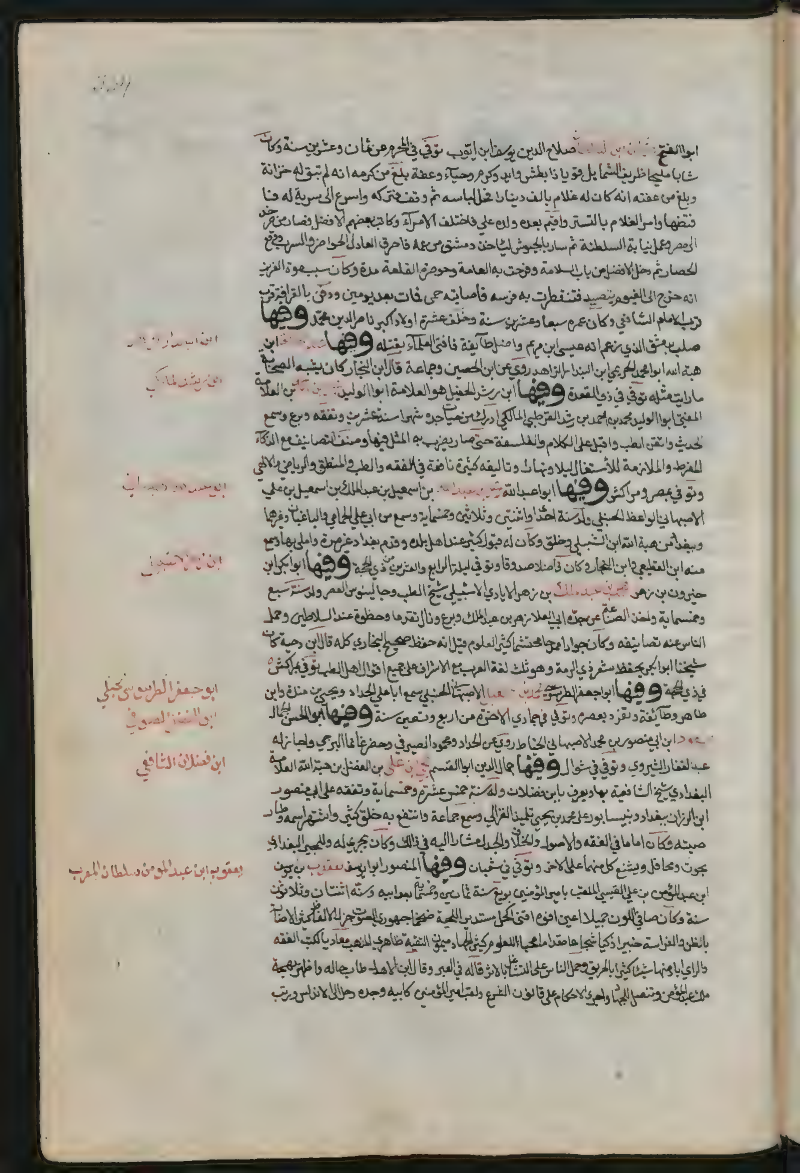 ابو الفتح صلاح الدين يوسف ابن ايوب توفي في المحرم عن ثمان وعشرين سنة وكان
شابا مليحا ظريف الشمايل قويا ذا بطش وايد وكرم وحياء وعفة بلغ من كرمه انه لم تبق له خزانة
وبلغ من عفته انه كان له غلام بالف دينار فحل لباسه ثم وقف فتركه واسرع الى سرية له فا
فتضها وامر الغلام بالتستر واقيم بعده ولده علي فاختلف الامراء وكاتب بعضهم الافضل فصار من
الى مصر وعمل نيابة السلطنة ثم سار بالجيوش لياخذ دمشق من عمه فاحرق العادل الحواضر والسرب ووقع
الحصار ثم دخل الافضل من باب السلامة وفرحت به العامة وحوصرت القلعة مدة وكان سبب موت العزيز
انه خرج الى الفيوم يتصيد فتقنطرت به فرسه فاصابته حمى فمات بعد يومين ودفن بالقرافة
قرب الامام الشافعي وكان عمره سبعا وعشرين سنة وخلف عشرة اولاد اكبرهم ناصر الدين محمد وفيها
صلب بدمشق الذي زعم انه عيسى ابن مريم واضل طايفة فافتى العلماء بقتله وفيها ابن
هبة الله ابو المحاسن ابن البندار الزاهد روى عن ابن الحصين وجماعة قال ابن النجار كان يشبه الصحابة
ما رايت مثله توفي في ذي القعدة وفيها ابن رشد الحفيد هو العلامة ابو الوليد بن العلامة
المفتي ابو الوليد محمد بن احمد بن رشد القرطبي المالكي ادرك من حياة جده شهرا سنة عشرين وتفقه وبرع وسمع
الحديث واتقن الطب واقبل على الكلام والفلسفة حتى صار يضرب به المثل فيها وصنف التصانيف مع الذكاء
المفرط والملازمة للاشتغال ليلا ونهارا وتآليفه كثيرة نافعة في الفقه والطب والمنطق والرياضي والالهي
وتوفي في صفر بمراكش وفيها ابو عبد الله بن اسمعيل بن عبد الملك بن اسمعيل بن علي
الاصبهاني الواعظ الحنبلي ولد سنة احدى او اثنتين وثلاثين وخمسماية وسمع من ابي علي الحمامي والباغبان وغيرهما
وببغداد من هبة الله ابن الشبلي وخلق وكان له قبول كثير عند اهل بلده وقدم بغداد غير مرة واملى بها وسمع
منه ابن القطيعي وابن النجار وكان فاضلا صدوقا وتوفي ليلة الرابع والعشرين من ذي الحجة وفيها ابو بكر ابن
خيرون بن زهر محمد بن عبد الملك بن زهر الايادي الاشبيلي شيخ الطب وجالينوس العصر ولد سنة سبع
وخمسماية واخذ الصناعة عن جده ابي العلا زهر بن عبد الملك وبرع ونال تقدما وحظوة عند السلاطين وحمل
الناس عنه تصانيفه وكان جوادا ممدحا محتشما كثير العلوم قيل انه حفظ صحيح البخاري كله قال ابن دحية كان
شيخنا ابو بكر يحفظ شعر ذي الرمة وهو ثلث لغة العرب مع الاشراف على جميع اقوال اهل الطب توفي بمراكش
في ذي الحجة وفيها ابو جعفر الطرسوسي محمد بن اسمعيل الاصبهاني الحنبلي سمع ابا علي الحداد ويحيى بن مندة وابن
طاهر وطايفة وتفرد بعصره وتوفي في جمادي الاخرة عن اربع وتسعين سنة وفيها ابو الحسن الجمال
مسعود ابن ابي منصور بن محمد الاصبهاني الخياط روى عن الحداد ومحمود الصيرفي وحضر غانما البرجي واجاز له
عبد الغفار الشيروي وتوفي في شوال وفيها جمال الدين ابو القسم يحيى بن علي بن الفضل بن هبة الله العلامة
البغدادي شيخ الشافعية بها ويعرف بابن فضلان ولد سنة خمس عشرة وخمسماية وتفقه على ابي منصور
ابن الرزاز ببغداد وبنيسابور على محمد بن يحيى تلميذ الغزالي وسمع جماعة وانتفع به خلق كثير واشتهر اسمه وطار
صيته وكان اماما في الفقه والاصول والخلاف والجدل مشارا اليه في ذلك وكان يجري له وللمجير البغدادي
بحوث ومحافل ويشنع كل منهما على الاخر وتوفي في شعبان وفيها المنصور ابو يوسف يعقوب بن يوسف
ابن عبد المؤمن بن علي القيسي الملقب بامير المؤمنين بويع سنة ثمانين وخمسماية بعد ابيه وسنه اثنتان وثلاثون
سنة وكان صافي اللون جميلا اعين افوه اقنى اكحل مستدير اللحية ضخما جهوري الصوت جزل الالفاظ كثير الاصابة
بالظن والفراسة خبيرا ذكيا شجاعا مقداما محبا للعلوم كثير الجهاد ميمون النقيبة ظاهري المذهب معاديا لكتب الفقه
والراي اباد منها شيئا كثيرا بالحريق وحمل الناس على التشاغل بالاثر قاله في العبر وقال ابن الاهدل طاب حاله واظهر بهجة
ملك عبد المؤمن وتنصل للجهاد واجرى الاحكام على قانون الشرع ولقب امير المؤمنين كابيه وجده رحل الى الاندلس ورتب
ابن رشد المالكي
ابو جعفر الطرسوسي الحنبلي
ابن فضلان الشافعي
يعقوب ابن عبد المؤمن سلطان المغرب